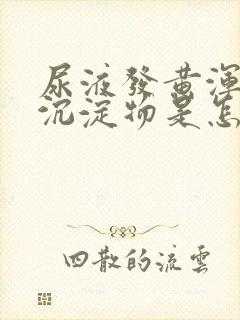 尿液發黃渾
沉淀物是怎
四散的流雲